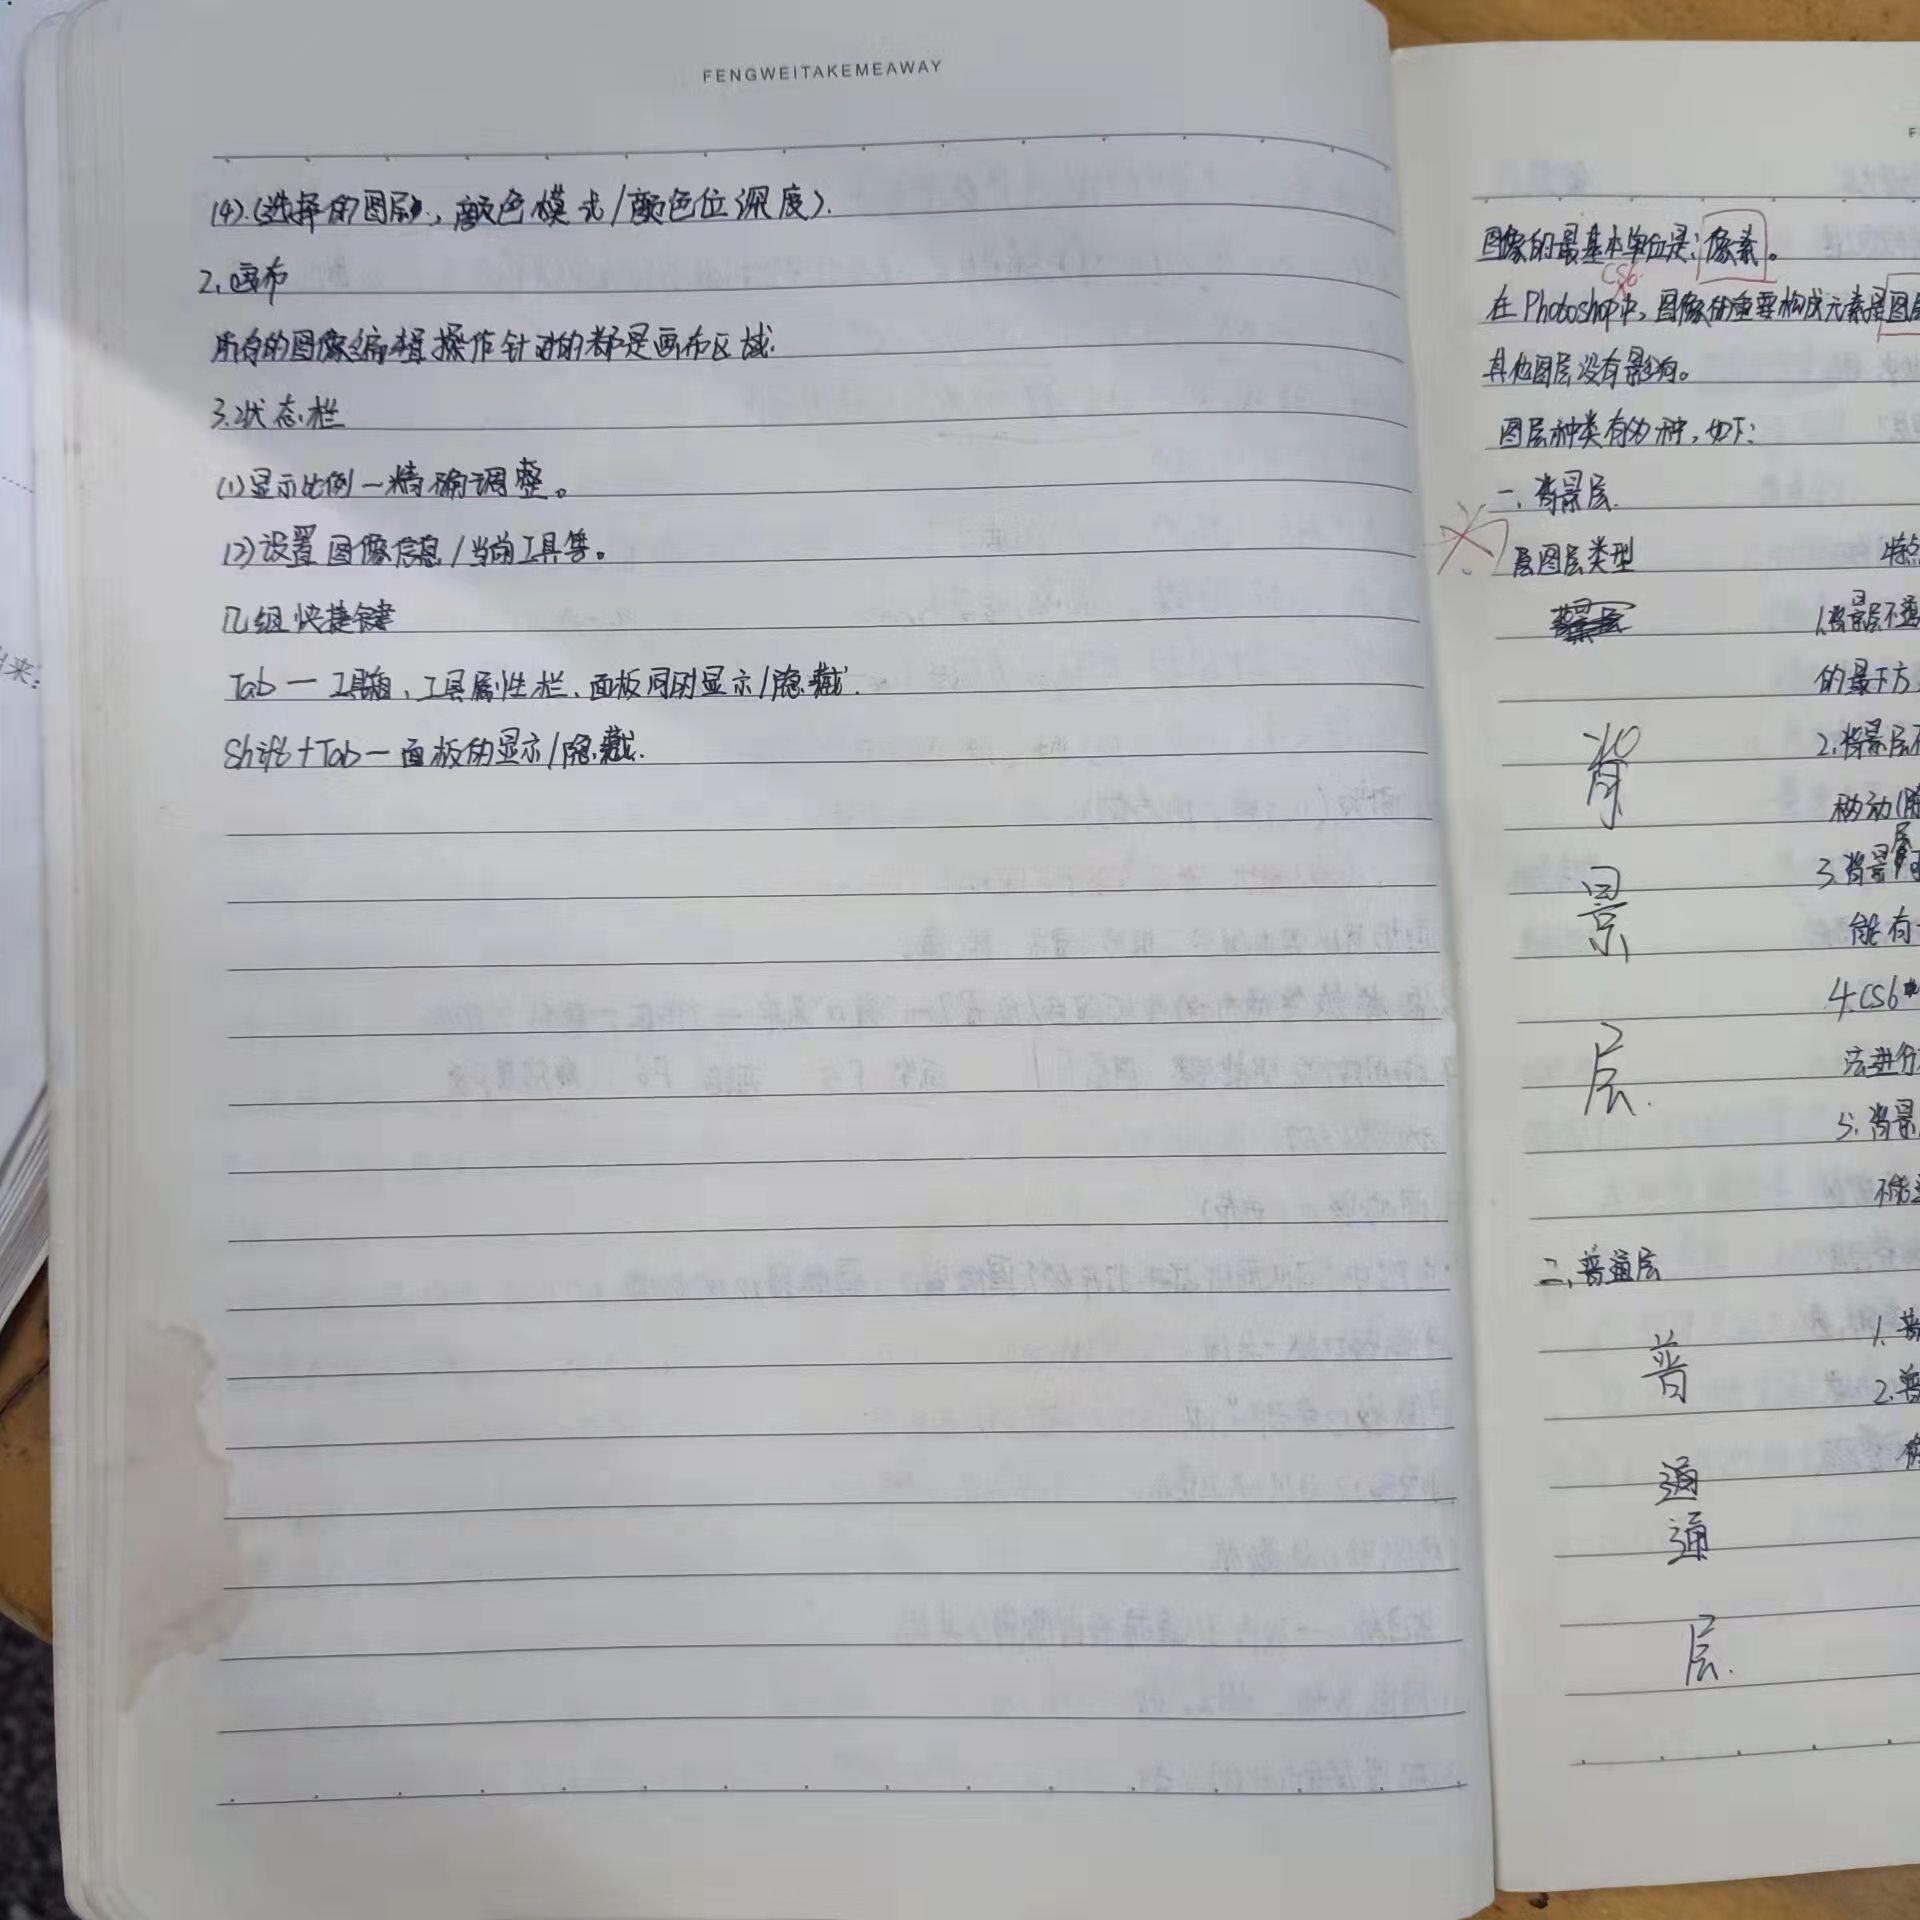 FENGWEITAKEMEAWAY
(4).(选择的图层)、颜色模式/颜色位深度).
2.画布
所有的图像编辑操作针对的都是画布区域.
3.状态栏
(1)显示比例—精确调整。
(2)设置图像信息/当前工具等。
几组快捷键
Tab — 工具箱、工具属性栏、面板同时显示/隐藏.
Shift+Tab — 面板的显示/隐藏.
来:
图像的最基本单位是:像素。
CS6
在Photoshop中,图像的重要构成元素是图层
其他图层没有影响。
图层种类有为种,如下:
一、背景层.
图层类型 特点
1.背景层不透
的最下方
2.背景层不
移动(除
3.背景层可
能有
4.CS6
法进行
5.背景
不能
背
景
层.
二、普通层
1.普
2.普
普
通
通
层.